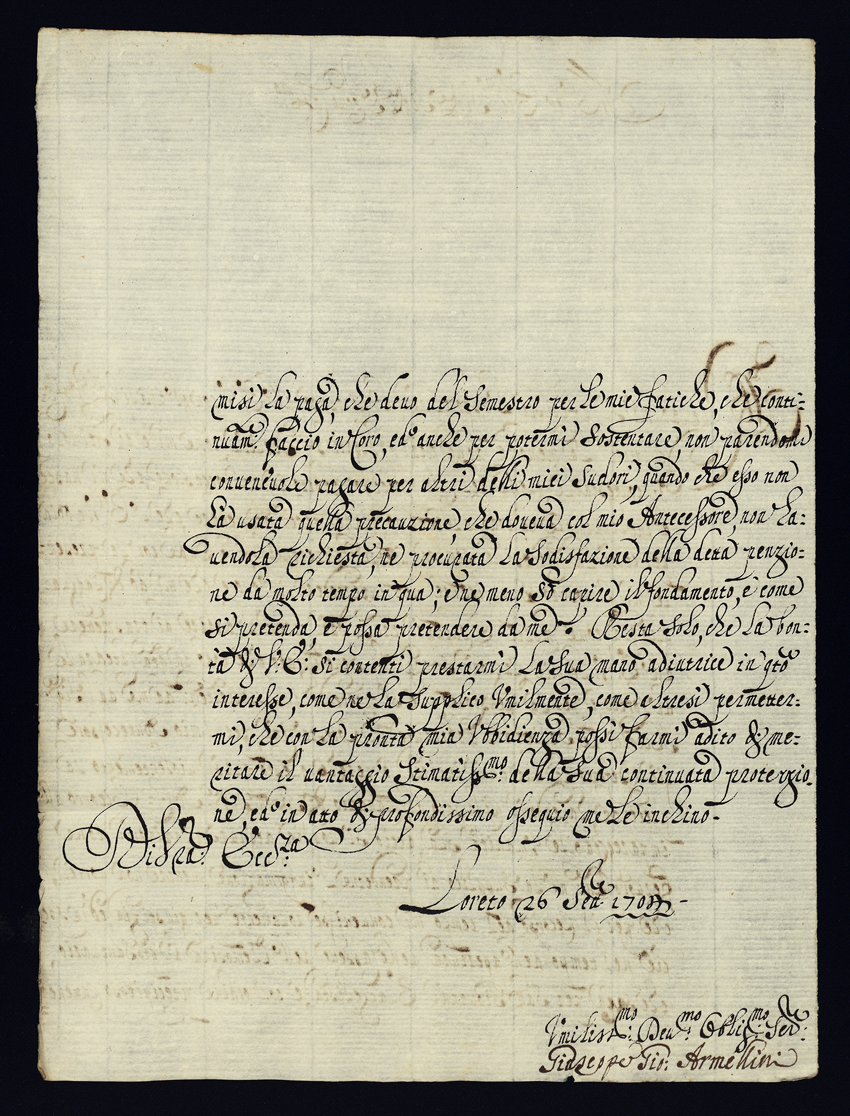 misi la paga, che deuo del Semestro per le mie fatiche, che conti:
nuam.te faccio in Coro, ed'anche per potermi Sostentare, non parendomi
conveneuole pagare per altri delli miei Sudori, quando che esso non
hà usata quella precauzione, che doueua col mio Antecessore, non ha:
uendola richiesta, nè procurata la sodisfazione della deta penzio:
ne da molto tempo in qua; e ne meno sò capire il fondamento, e come
si pretenda, e possa pretendere da me. Resta solo, che la bon:
tà di V. E: si contenti prestarmi la sua mano adiutrice in q.to
interesse, come ne la Supplico Vmilmente, come altresì permetter:
mi, che con la pronta mia Vbbidienza possi farmi adito di me:
ritare il uantaggio Stimatiss.mo della sua continuata protezzio:
ne, ed'in atto di profondissimo ossequio me le inchino.
Di V.ra Ecc.za
Loreto 26
Vmiliss.mo Deu.mo Oblig.mo Ser.re
Giuseppe Gio: Armellini